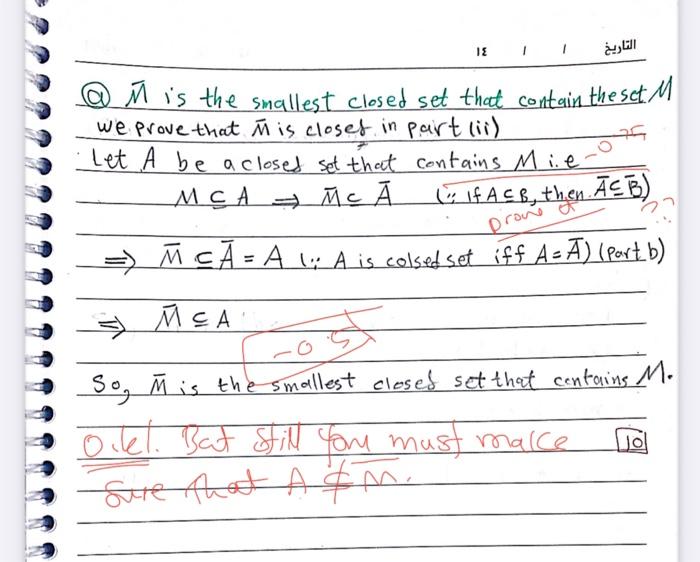 التاريخ / / ١٤
ⓐ M̄ is the smallest closed set that contain the set M
we prove that M̄ is closet in part (ii)
Let A be a closed set that contains M i.e -0.75
M ⊆ A ⇒ M̄ ⊂ Ā (∵ if A ⊆ B, then Ā ⊆ B̄)
prove it ??
⇒ M̄ ⊆ Ā = A (∵ A is colsed set iff A = Ā) (Part b)
⇒ M̄ ⊆ A
-0.5
So, M̄ is the smallest closed set that contains M.
O.k!. But still you must make 10
sure that A ⊄ M̄.